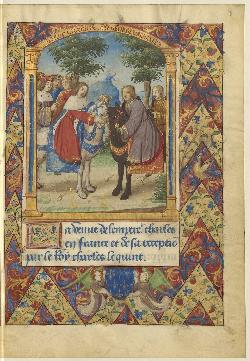 La venue de lempere charles
en france et de sa recepcio
par le Roy charles le quint.